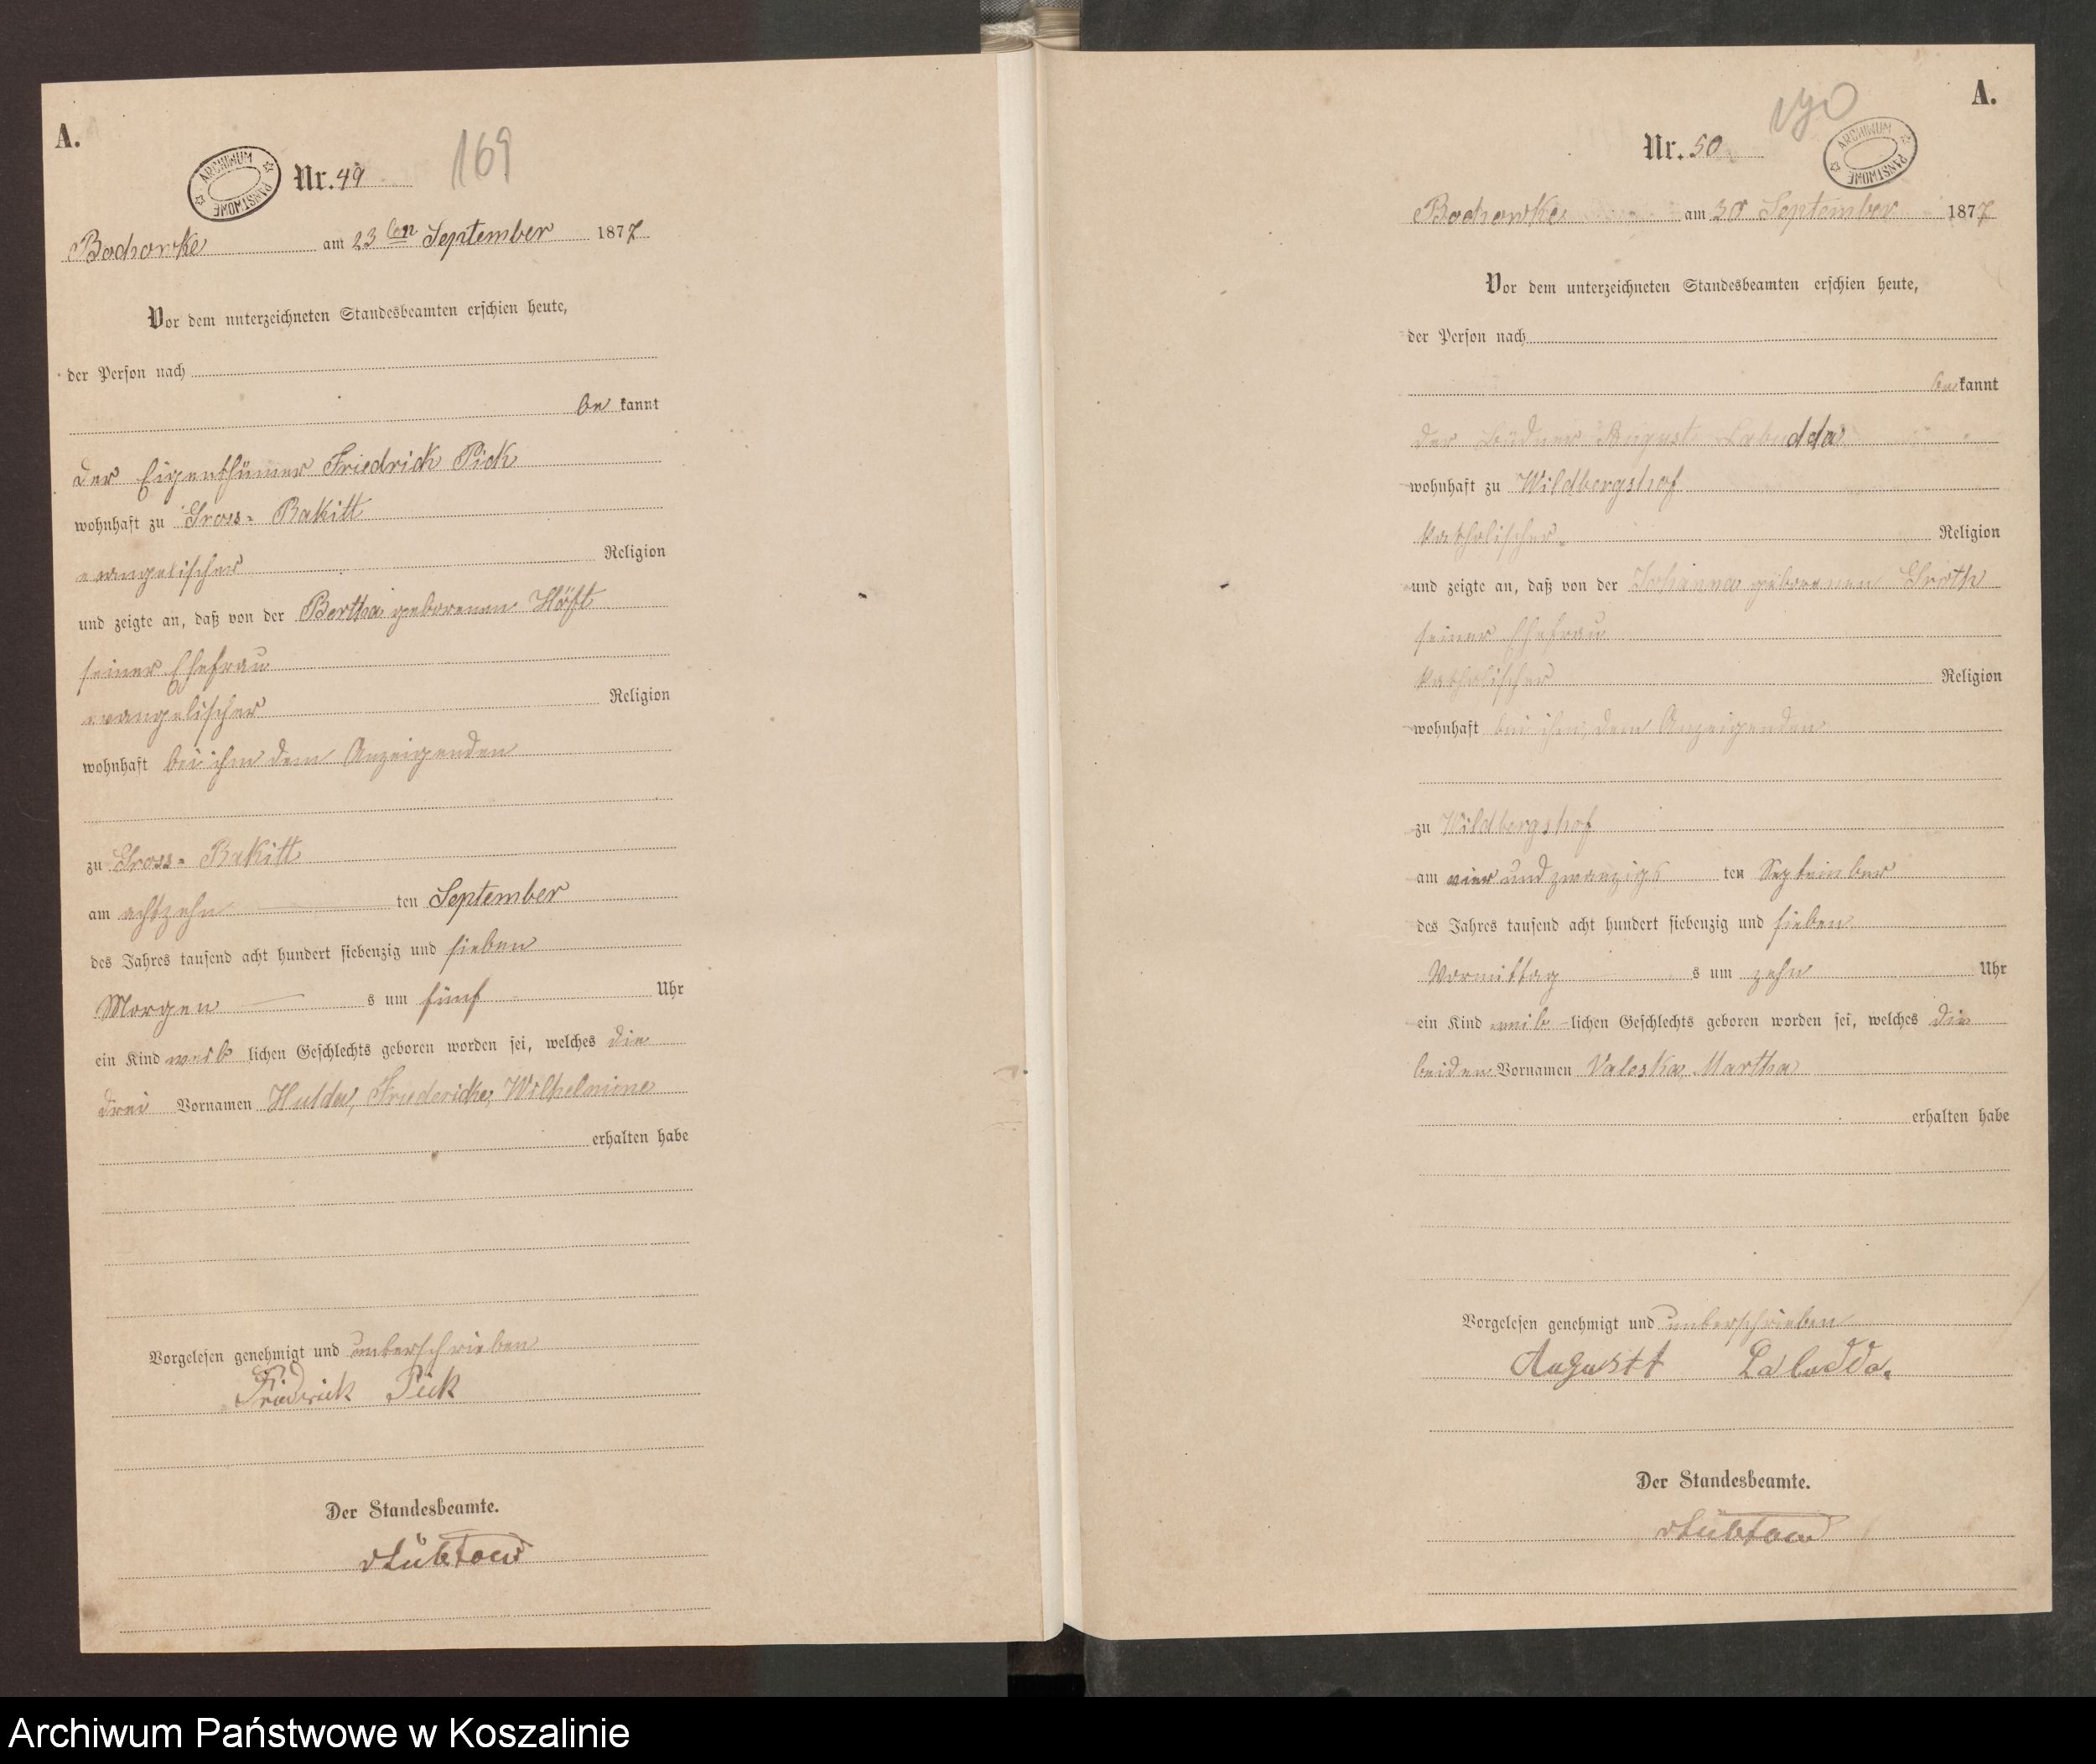 A.
ARCHIWUM PAŃSTWOWE
Nr. 49
169
Bochowke am 23ten September 1877
Vor dem unterzeichneten Standesbeamten erschien heute,
der Person nach
be kannt
der Eigenthümer Friedrich Pick
wohnhaft zu Gross-Rakitt
evangelischer Religion
und zeigte an, daß von der Bertha geborenen Höft
seiner Ehefrau
evangelischer Religion
wohnhaft bei ihm dem Anzeigenden
zu Gross-Rakitt
am achtzehn ten September
des Jahres tausend acht hundert siebenzig und sieben
Morgen s um fünf Uhr
ein Kind weib lichen Geschlechts geboren worden sei, welches die
drei Vornamen Hulda, Friedericke, Wilhelmine
erhalten habe
Vorgelesen genehmigt und unterschrieben
Friedrich Pick
Der Standesbeamte.
vLübtow
A.
170
Nr. 50
ARCHIWUM PAŃSTWOWE
Bochowke am 30 September 1877
Vor dem unterzeichneten Standesbeamten erschien heute,
der Person nach
be kannt
der Büdner August Labudda
wohnhaft zu Wildbergshof
katholischer Religion
und zeigte an, daß von der Johanna geborenen Groth
seiner Ehefrau
katholischer Religion
wohnhaft bei ihm, dem Anzeigenden
zu Wildbergshof
am vier und zwanzigs ten September
des Jahres tausend acht hundert siebenzig und sieben
Vormittag s um zehn Uhr
ein Kind weib lichen Geschlechts geboren worden sei, welches die
beiden Vornamen Valeska, Martha
erhalten habe
Vorgelesen genehmigt und unterschrieben
Augustt Labudda.
Der Standesbeamte.
vLübtow
Archiwum Państwowe w Koszalinie